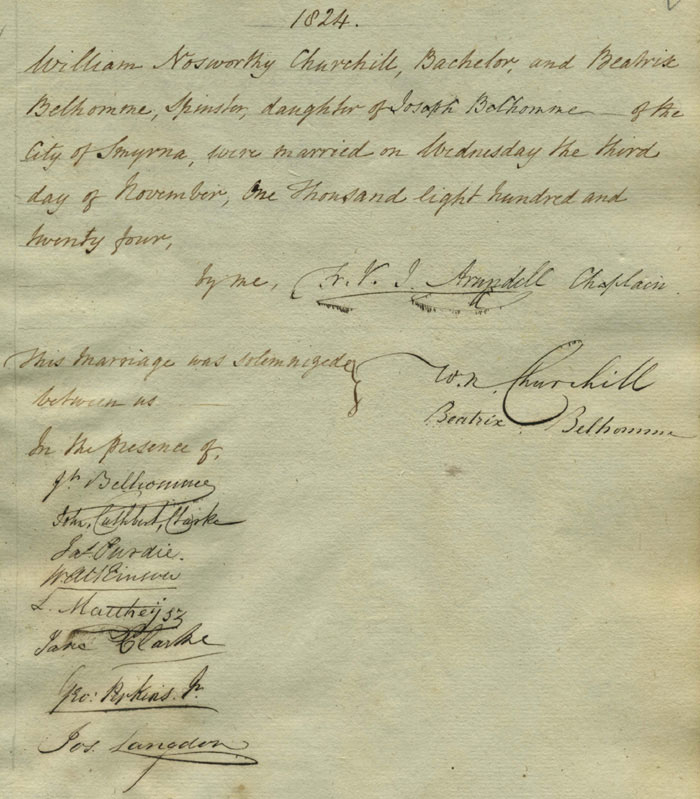 1824.
William Nosworthy Churchill, Bachelor, and Beatrix
Belhomme, Spinster, daughter of Joseph Belhomme of the
City of Smyrna, were married on Wednesday the third
day of November, One Thousand eight hundred and
twenty four,
by me, Fr. V. J. Arundell Chaplain.
This Marriage was solemnized
between us
W. N. Churchill
Beatrix Belhomme
In the presence of,
Jh. Belhomme
John, Cuthbert, Clarke
Jas. Purdie.
W. Atkinson
L. Mattheysz
Jane Clarke
Geo: Perkins. Jr.
Jos. Langdon